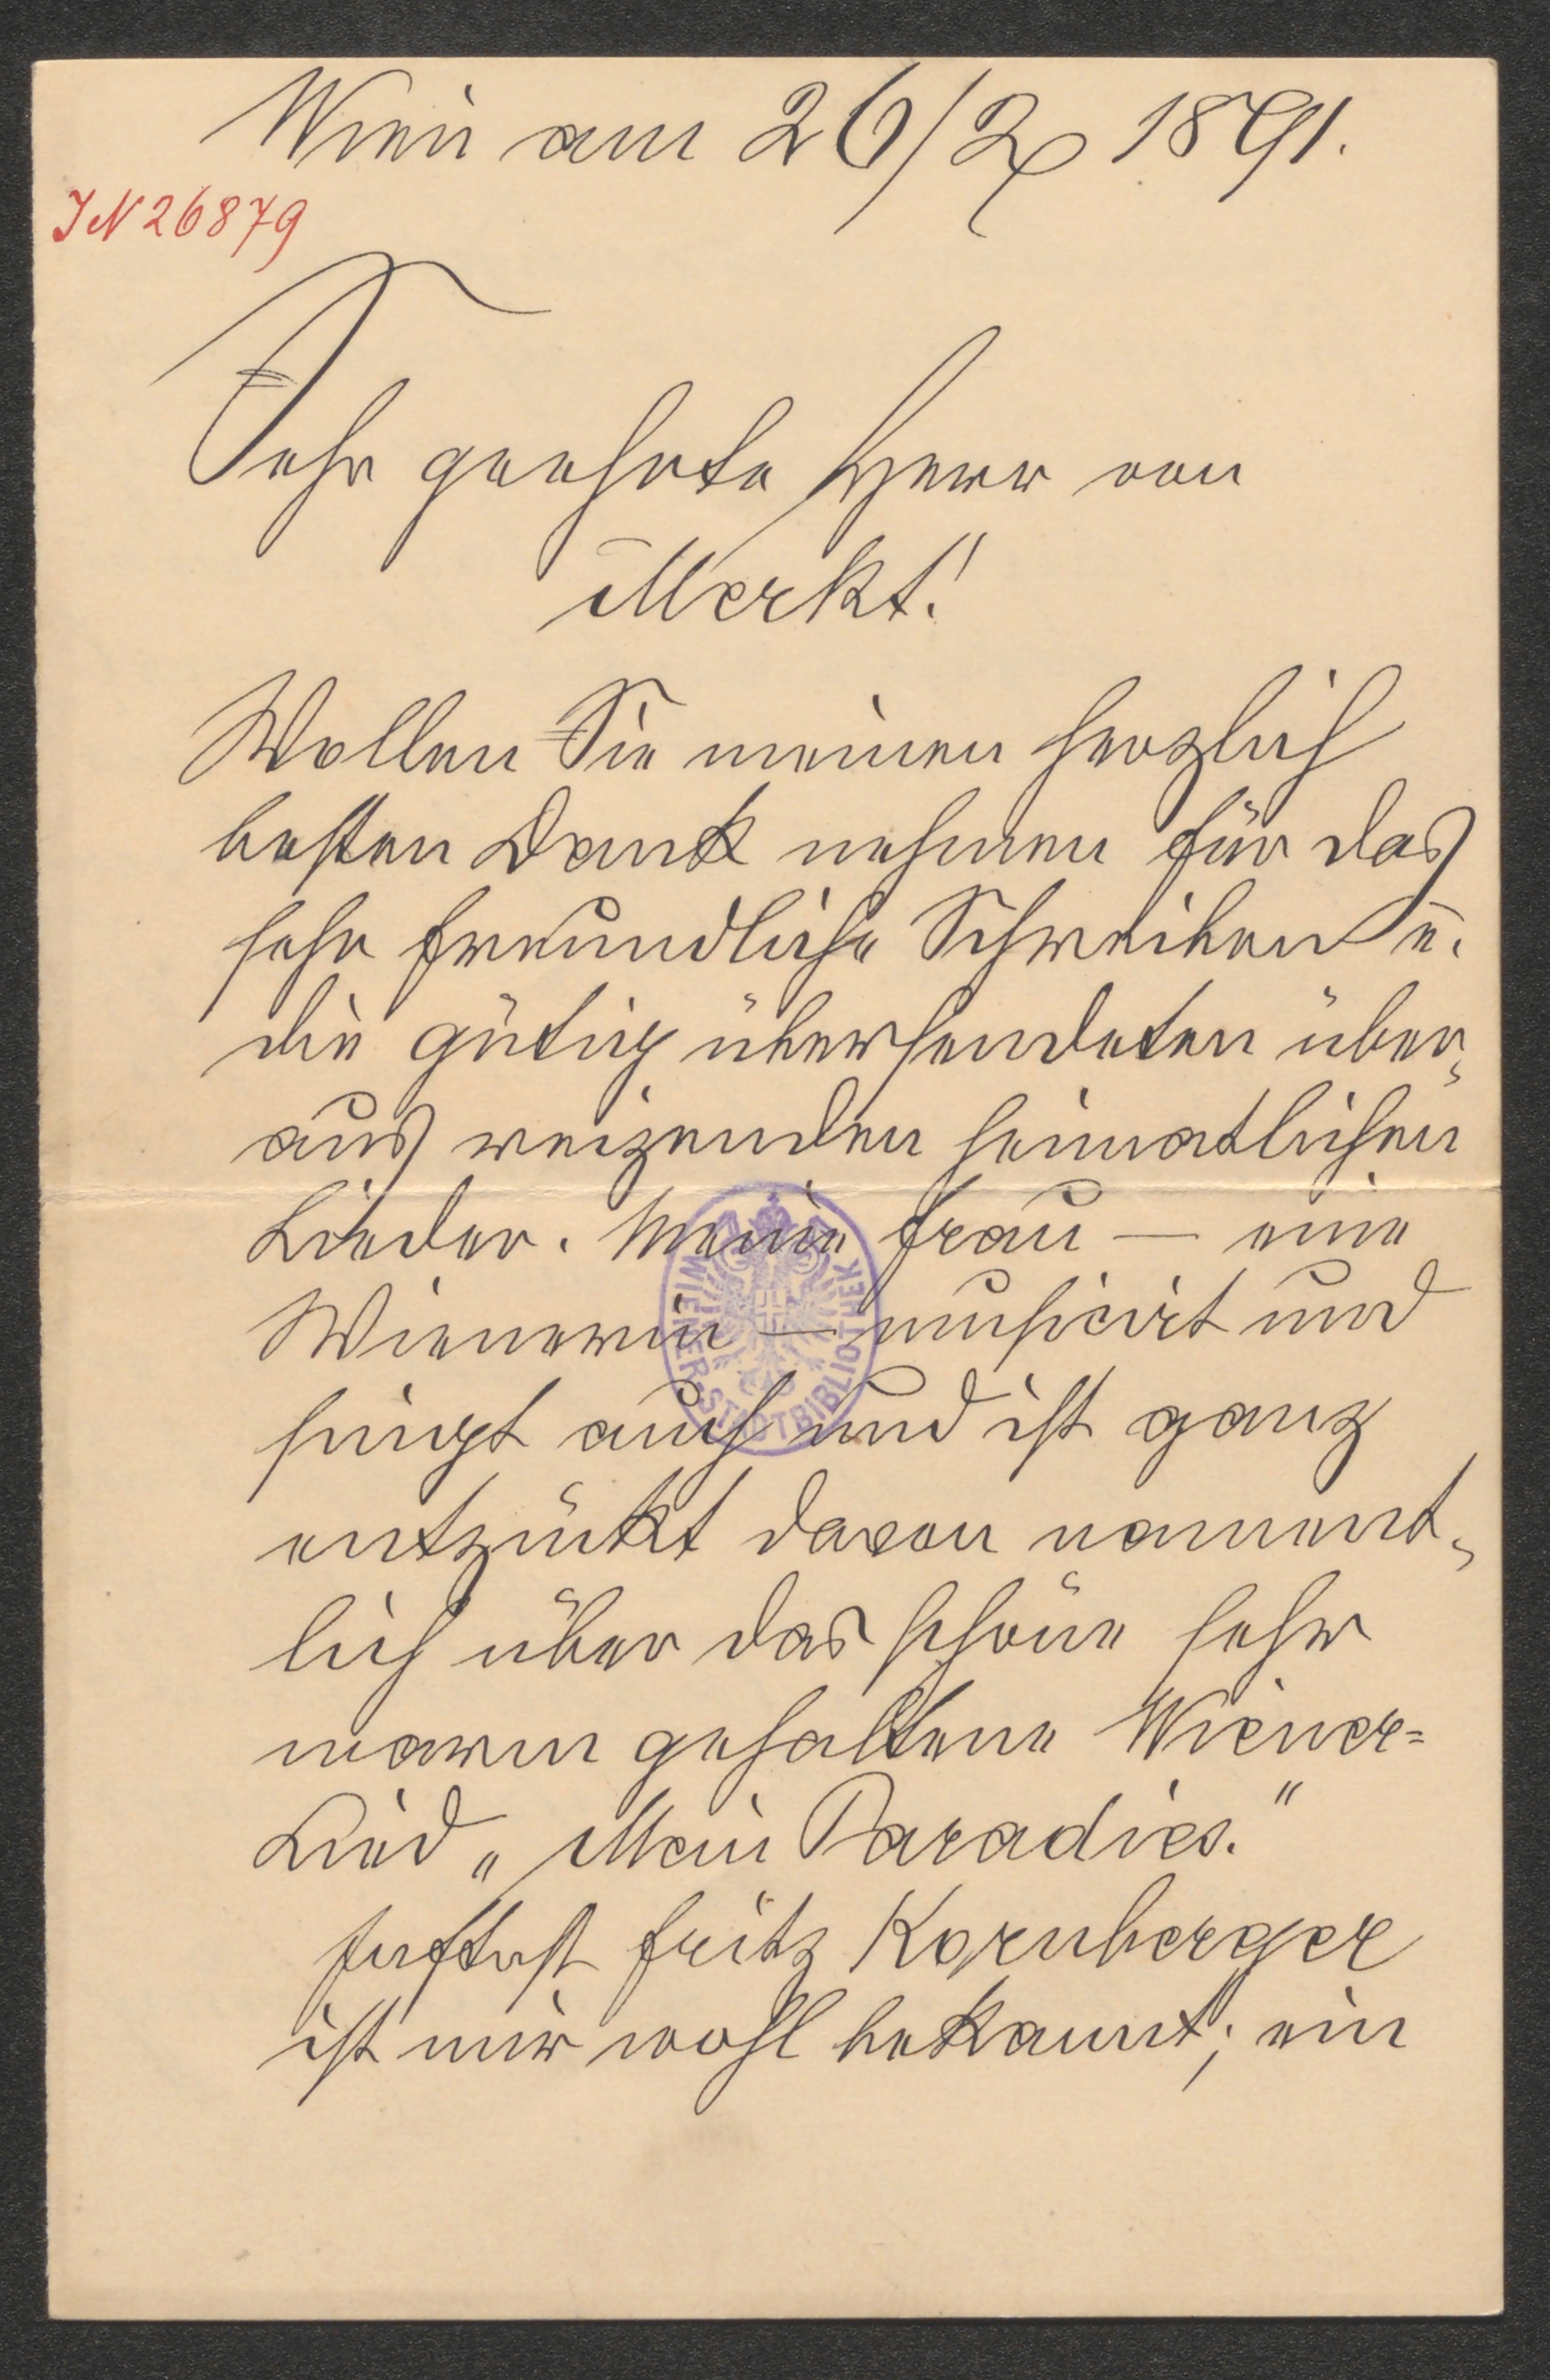 Wien am 26/2 1891.
IN 26879
Sehr geehrte Herr von
Merkt!
Wollen Sie meinen herzlich
besten Dank nehmen für das
sehr freundliche Schreiben u.
die gütig übersendeten über-
aus reizenden heimatlichen
Lieder. Meine Frau — eine
Wienerin — musicirt und
singt auch und ist ganz
entzückt davon nament-
lich über das schöne sehr
warm gehaltene Wiener=
Lied „Mein Paradies."
Fritz Kornberger
ist mir wohl bekannt; ein
WIENER-STADTBIBLIOTHEK